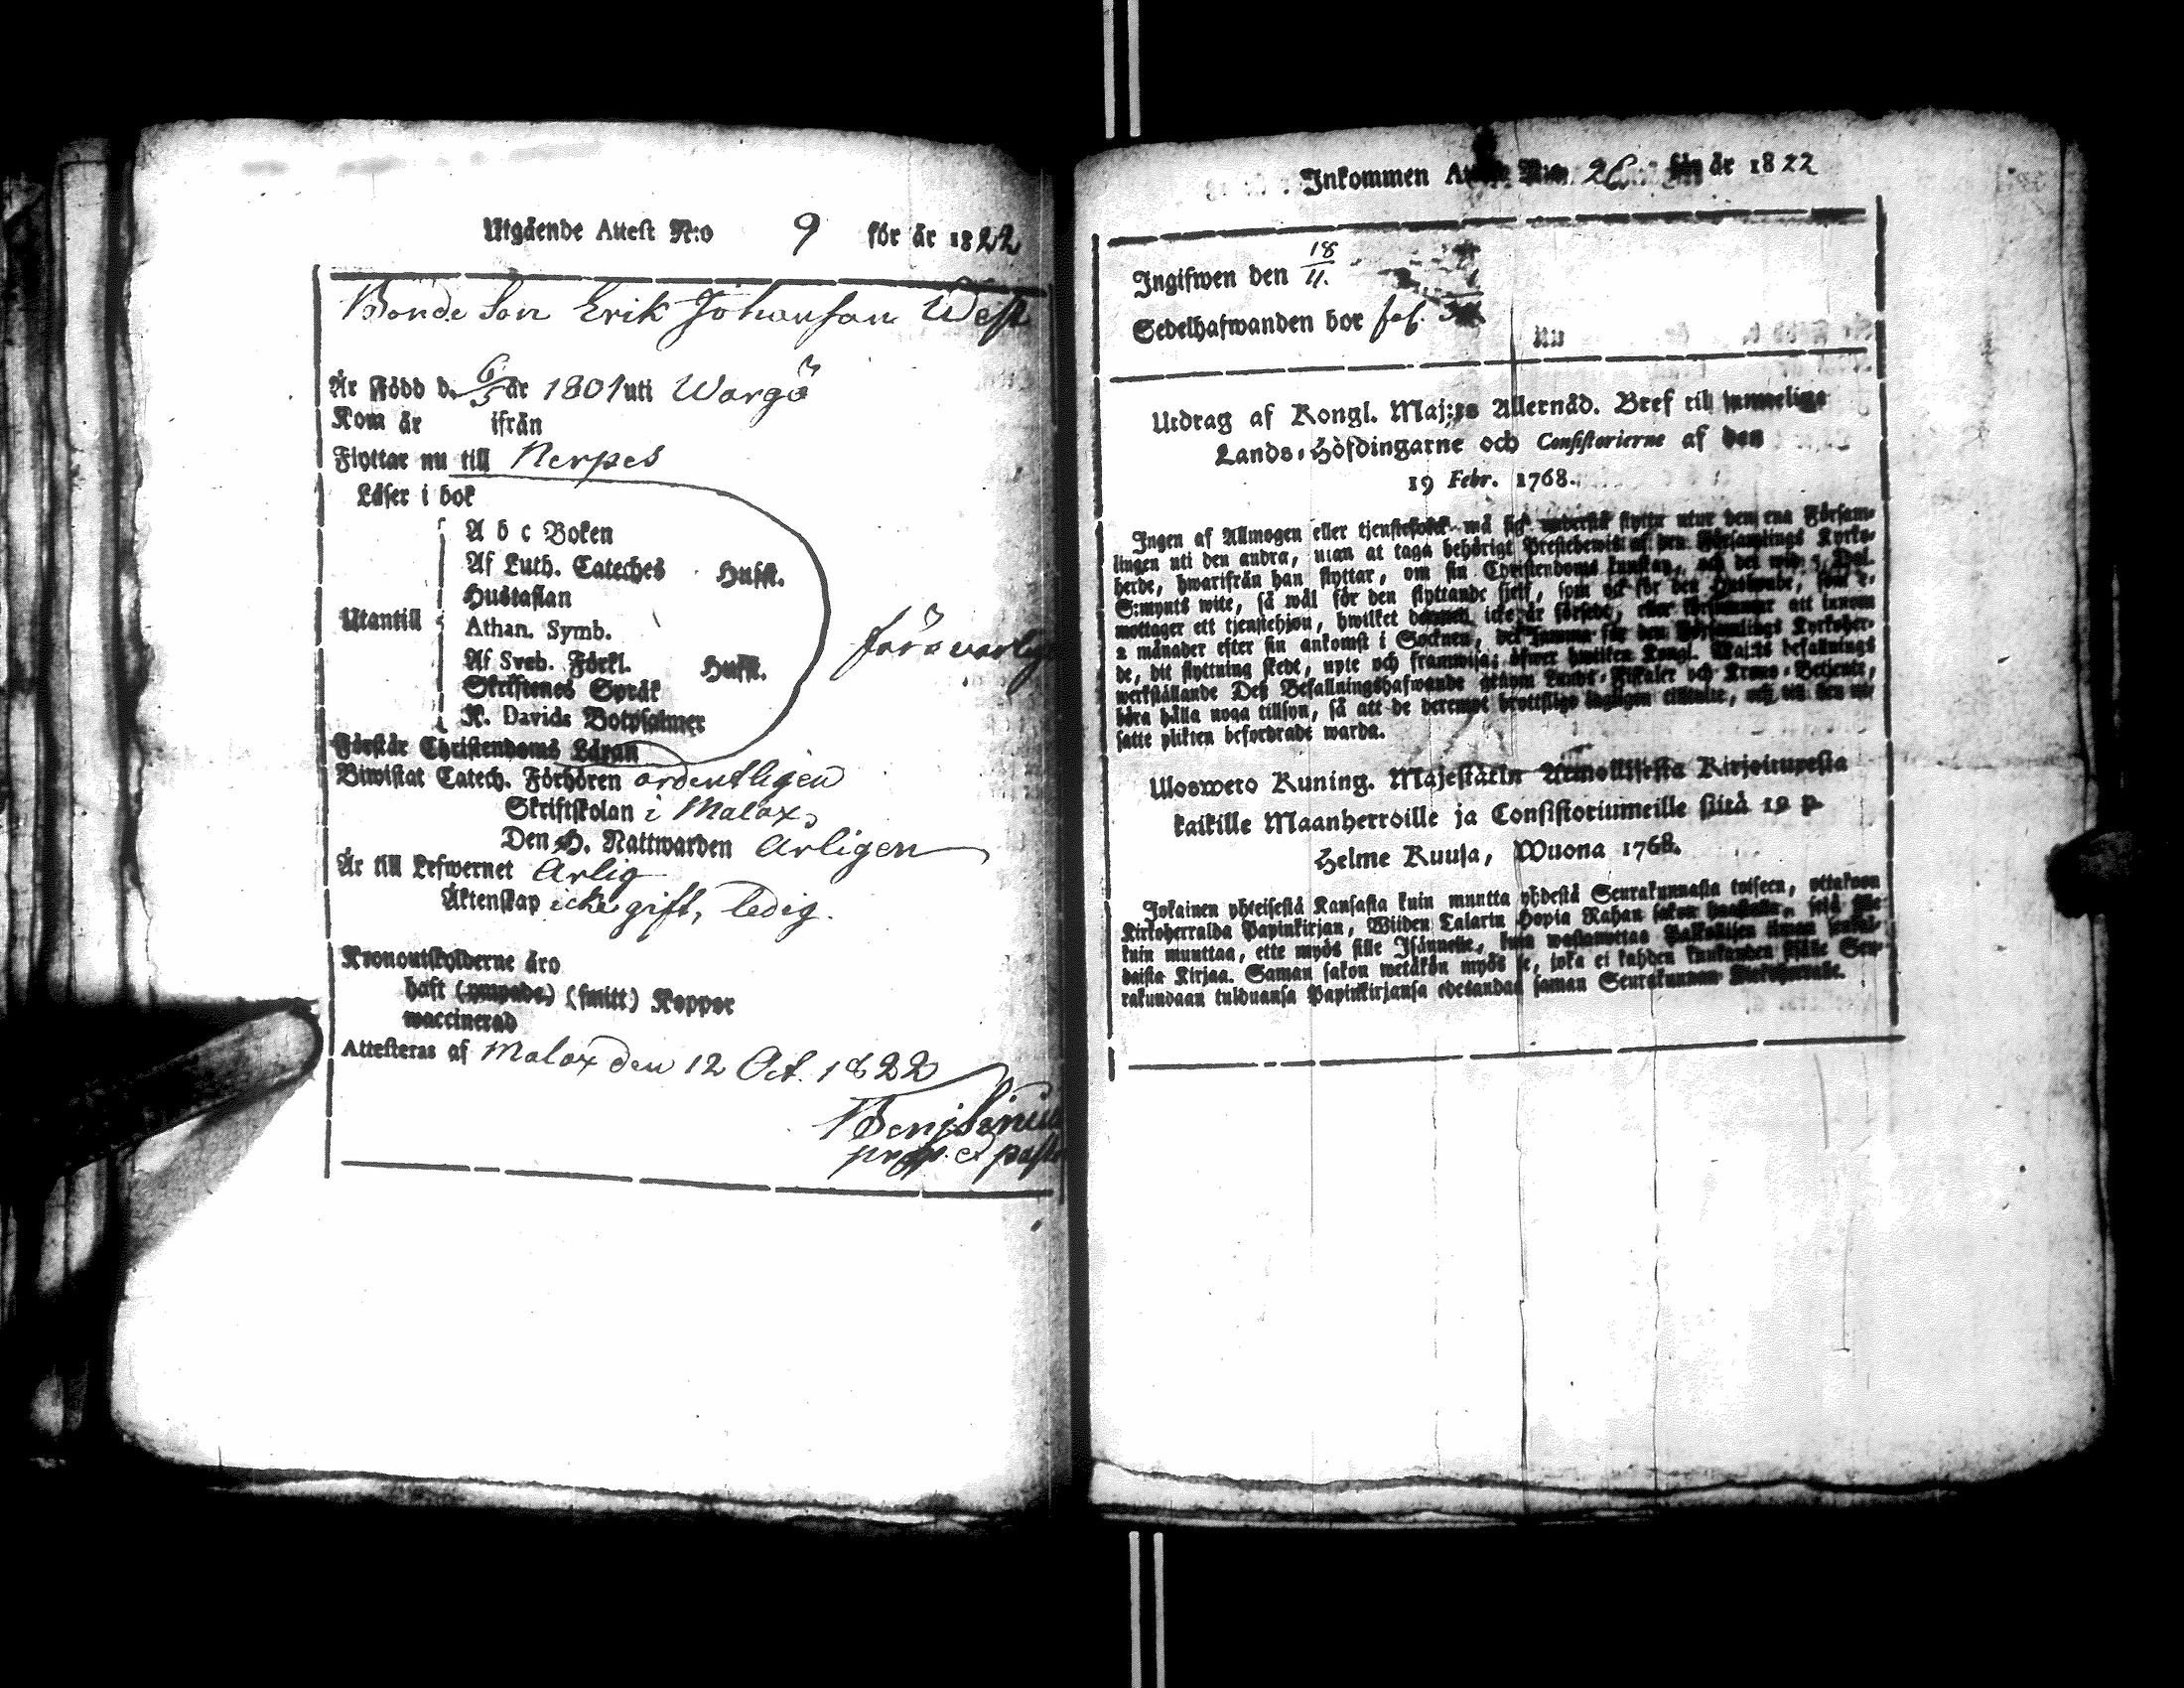 Utgående Attest N:o 9 för år 1822
Bonde Son Erik Johansson West
Är Född d. 6/5 år 1801 uti Wargö
Kom år ifrån
Flyttar nu till Nerpes
Läser i bok
A b c Boken
Af Luth. Cateches Husfl.
Hustaflan
Utantill Athan. Symb.
Af Sveb. Förkl. Husfl.
Skriftenes Språk
K. Davids Botpsalmer
försvarlig
Förstår Christendoms Läran
Biwistat Catech. Förhören ordentligen
Skriftskolan i Malax,
Den H. Nattwarden Årligen
Är till Lefwernet Ärlig
Äktenskap icke gift, ledig.
Kronoutskylderne äro
haft (ympade) (smitt) Koppor
waccinerad
Attesteras af Malax den 12 Oct. 1822
Benj
prop. et past
Inkommen N:o 26 för år 1822
Ingifwen den 18/11.
Sedelhafwanden bor fol.
Utdrag af Kongl. Maj:ts Allernåd. Bref till samtelige
Lands-Höfdingarne och Consistorierne af den
19 Febr. 1768.
Ingen af Allmogen eller tjenstefolck må sig understå flytta utur den ena Försam-
lingen uti den andra, utan at taga behörigt Prestebewis af den Församlings Kyrko-
herde, hwarifrån han flyttar, om sin Christendoms kunskap, och det wid 5 Dal.
S:mynts wite, så wäl för den flyttande sjelf, som ock för den Husbonde, som
mottager ett tjenstehjon, hwilket dermed icke är försedt, eller försummar att innom
2 månader efter sin ankomst i Socknen, det samma för den Församlings Kyrkoher-
de, dit flyttning skedt, upte och framwisa; öfwer hwilken Kongl. Maj:ts befallnings
werkställande Deß Befallningshafwande genom Lands-Fiskaler och Krono-Betjente,
böra hålla noga tillsyn, så att de deremot brottslige lagligen tilltalte, och till den ut-
satte plikten befordrade warda.
Ulosweto Kuning. Majestätin Armollisesta Kirjoituxesta
kaikille Maanherroille ja Consistoriumeille siitä 19 p.
Helme Kuusa, Wuona 1768.
Jokainen yhteisestä Kansasta kuin muutta yhdestä Seurakunnasta toiseen, ottakoon
Kirkoherralda Papinkirjan, Wiiden Talarin Hopia Rahan sakon haastolla, sekä sille
kuin muuttaa, ette myös sille Isännelle, kuin wastanottaa Palkollisen ilman senkal-
daista Kirjaa. Saman sakon wetäkön myös se, joka ei kahden kuukauden sisälle Seu-
rakundaan tulduansa Papinkirjansa edesandas saman Seurakunnan Kirkoherralle.